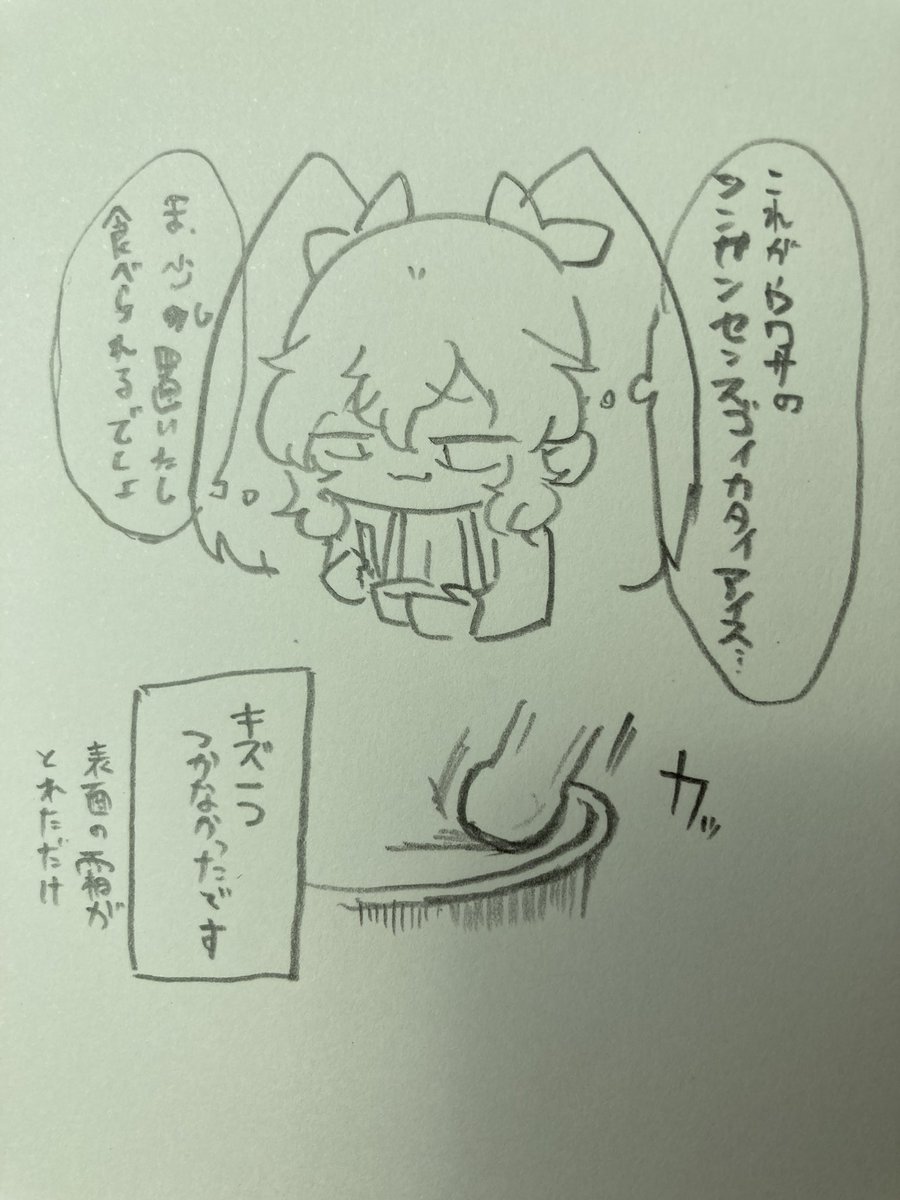 これがウワサの
シンカンセンスゴイカタイアイス…
ま、少し置いたし
食べられるでしょ
カッ
キズ一つ
つかなかったです
表面の霜が
とれただけ